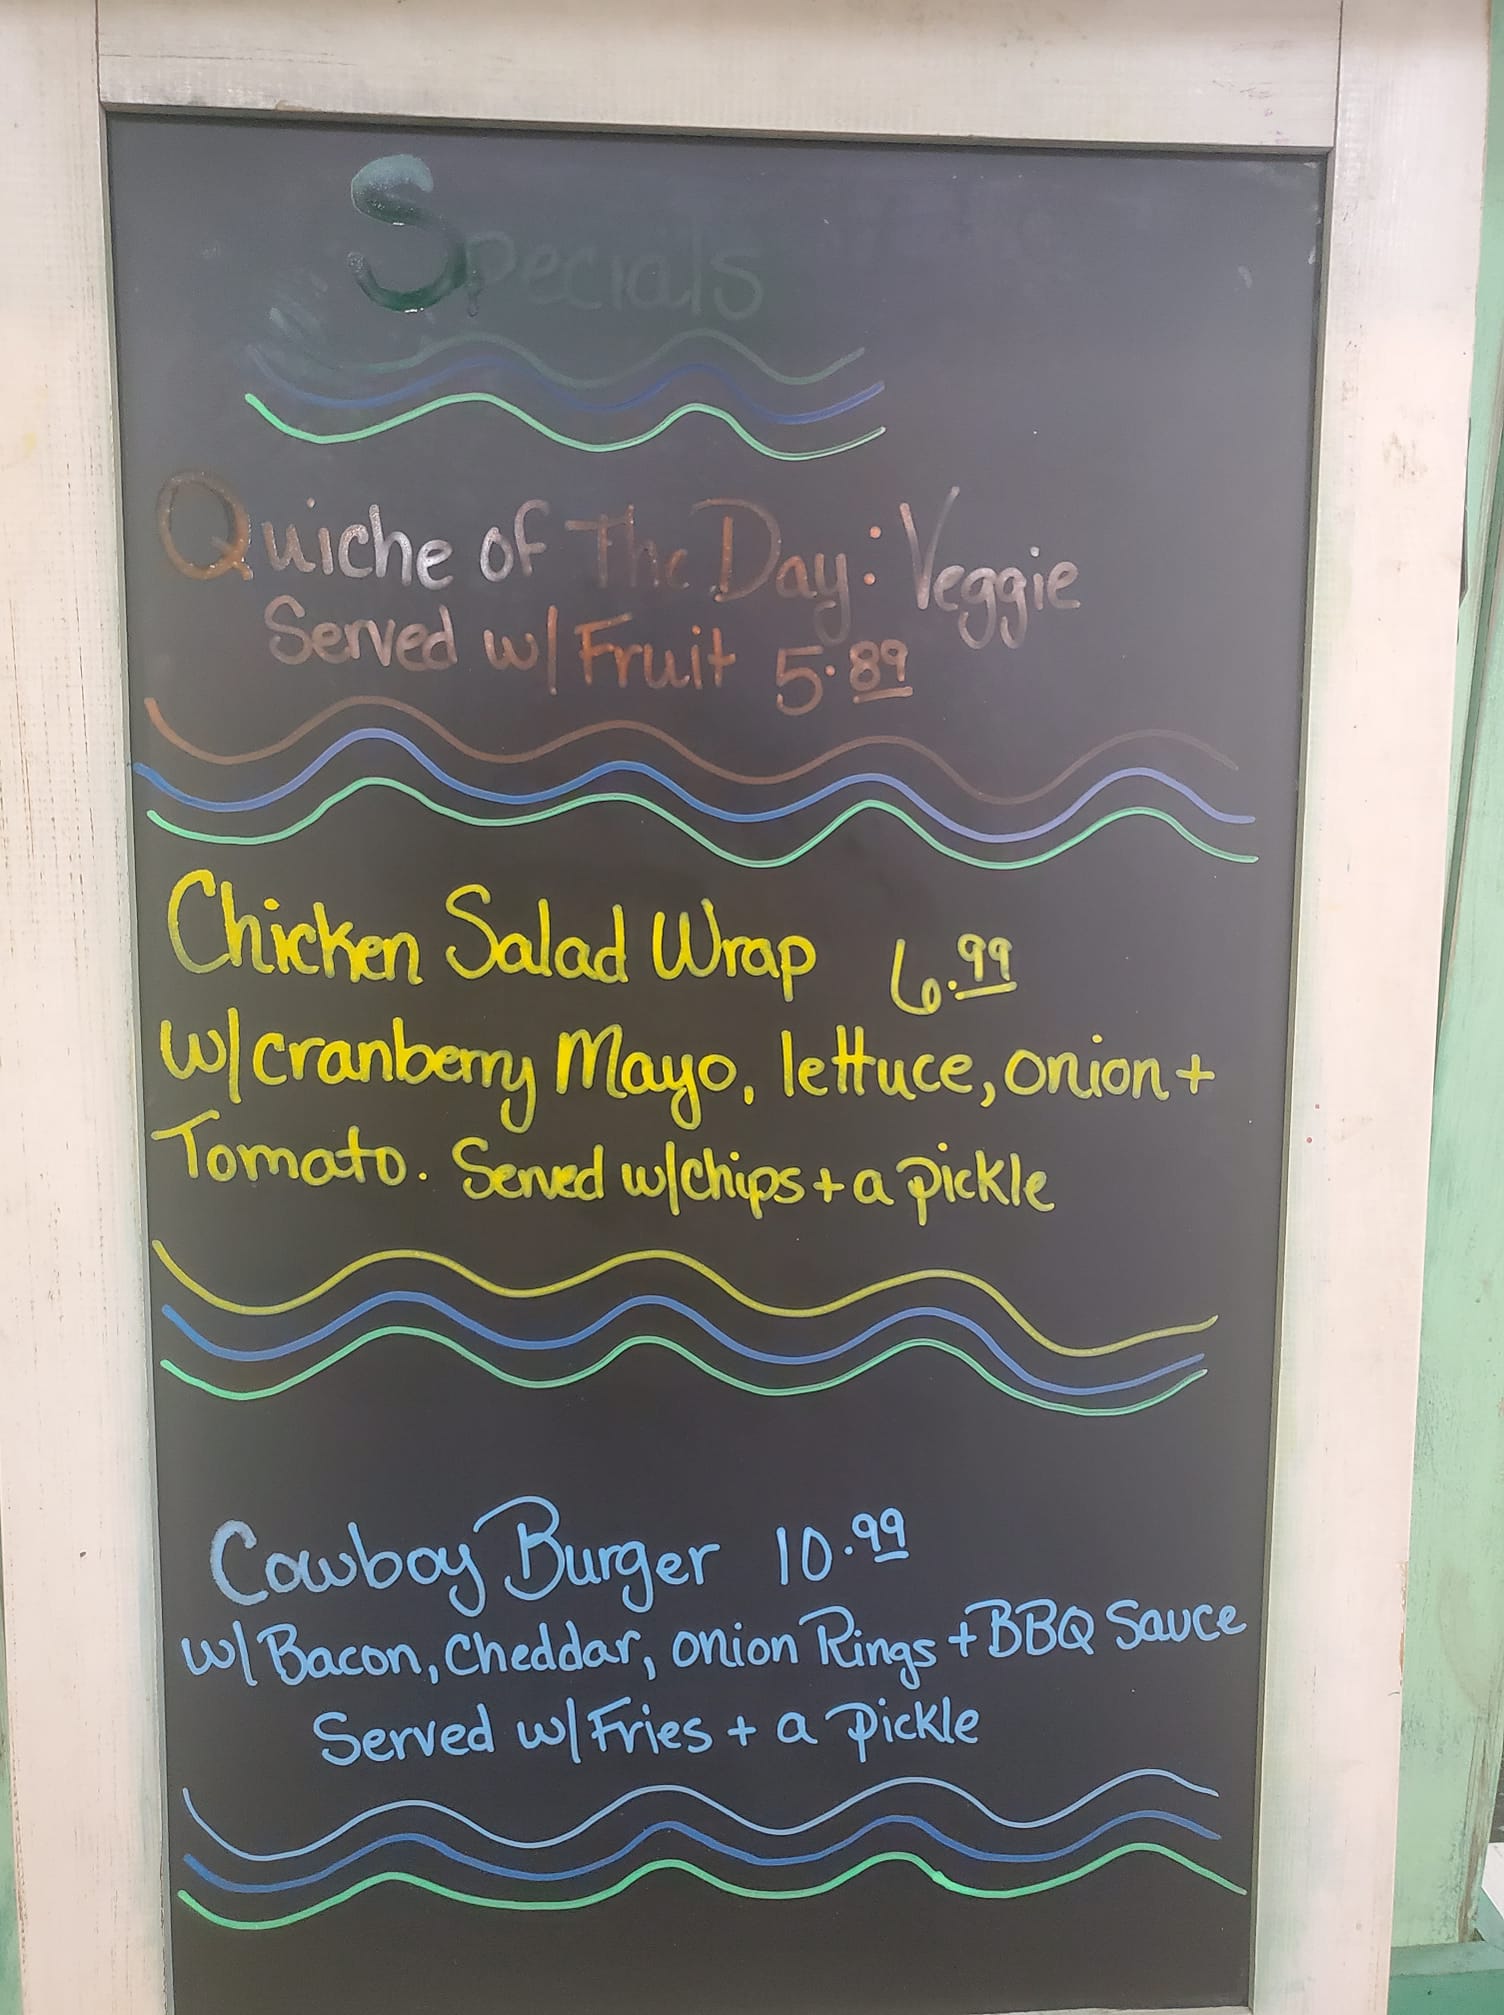 Specials
Quiche of The Day: Veggie
Served w/ Fruit 5.89
Chicken Salad Wrap 6.99
w/ cranberry Mayo, lettuce, onion +
Tomato. Served w/chips + a pickle
Cowboy Burger 10.99
w/ Bacon, Cheddar, onion Rings + BBQ Sauce
Served w/ Fries + a pickle